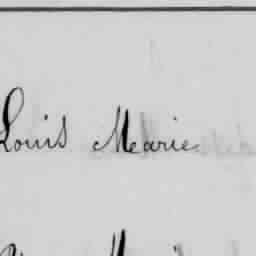 Louis Marie